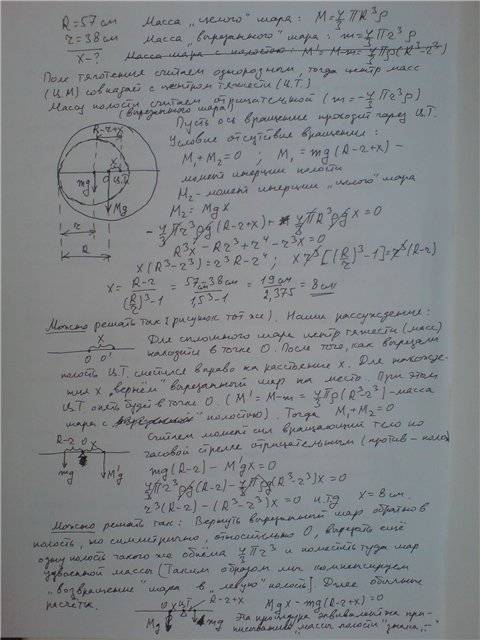 R = 57 см   Масса „целого" шара: M = 4/3 πR³ρ
r = 38 см   Масса „вырезанного" шара: m = 4/3 πr³ρ
x - ?   Масса шара с полостью: M' = M-m = 4/3 πρ(R³-r³)
Поле тяготения считаем однородным, тогда центр масс
(Ц.М) совпадает с центром тяжести (Ц.Т.)
Массу полости считаем отрицательной (m = -4/3 πr³ρ)
(вырезанного шара)
Пусть ось вращения проходит через Ц.Т.
Условие отсутствие вращения:
R-r+x
M₁+M₂=0 ; M₁ = mg(R-r+x) -
момент инерции полости
x
O Ц.Т.
mg
M₂ - момент инерции „целого" шара
Mg
M₂ = Mgx
r
-4/3 πr³ρg(R-r+x) + 4/3 πR³ρg x = 0
R
R³x - Rr³ + r⁴ - r³x = 0
x(R³-r³) = r³R - r⁴ ; x r³[(R/r)³-1] = r³(R-r)
x = (R-r)/((R/r)³-1) = (57-38)/(1,5³-1) = 19см/2,375 = 8см
Можно решать так (рисунок тот же). Наши рассуждение:
Для сплошного шара центр тяжести (масс)
x
O O'
находится в точке O. После того, как вырезали
полость Ц.Т. сместился вправо на расстояние x. Для нахожде-
ния x „вернём" вырезанный шар на место. При этом
Ц.Т. опять будет в точке O. (M' = M-m = 4/3 πρ(R³-r³) - масса
шара с полостью). Тогда M₁+M₂=0
Считаем момент сил вращающий тело по
R-r O x
часовой стрелке отрицательным (против - полож)
mg M'g
mg(R-r) - M'gx = 0
4/3 πr³ρg(R-r) - 4/3 πρg(R³-r³)x = 0
r³(R-r) - (R³-r³)x = 0 и.тд x = 8см.
Можно решать так: Вернуть вырезанный шар обратно в
полость, но симметрично, относительно O, вырезать ещё
одну полость такого же объёма 4/3 πr³ и поместить туда шар
удвоенной массы [Таким образом мы компенсируем
„возвращение" шара в „левую" полость]. Далее обычные
расчёты.
O Ц.Т. R-r+x
Mgx - mg(R-r+x) = 0
Mg mg
Эта процедура эквивалентна при-
писыванию „массы полости" знака „-"